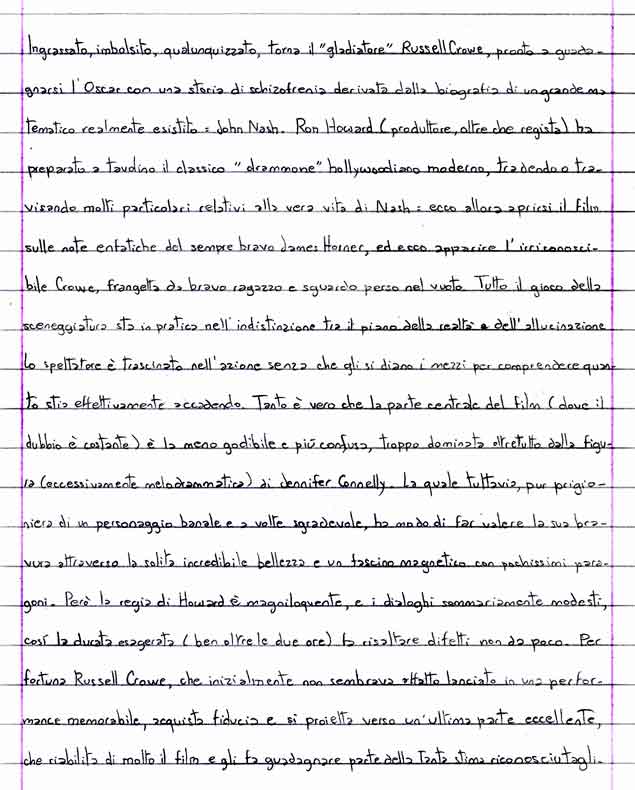 Ingrassato, imbolsito, qualunquizzato, torna il "gladiatore" Russell Crowe, pronto a guada-
gnarsi l'Oscar con una storia di schizofrenia derivata dalla biografia di un grande ma
tematico realmente esistito: John Nash. Ron Howard (produttore, oltre che regista) ha
preparato a tavolino il classico "drammone" hollywoodiano moderno, tradendo o tra-
visando molti particolari relativi alla vera vita di Nash: ecco allora aprirsi il film
sulle note enfatiche del sempre bravo James Horner, ed ecco apparire l'irriconosci-
bile Crowe, frangetta da bravo ragazzo e sguardo perso nel vuoto. Tutto il gioco della
sceneggiatura sta in pratica nell'indistinzione tra il piano della realtà e dell'allucinazione
Lo spettatore è trascinato nell'azione senza che gli si diano i mezzi per comprendere quan-
to stia effettivamente accadendo. Tanto è vero che la parte centrale del film (dove il
dubbio è costante) è la meno godibile e più confusa, troppo dominata oltretutto dalla figu-
ra (eccessivamente melodrammatica) di Jennifer Connelly. La quale tuttavia, pur prigio-
niera di un personaggio banale e a volte sgradevole, ha modo di far valere la sua bra-
vura attraverso la solita incredibile bellezza e un fascino magnetico con pochissimi para-
goni. Però la regia di Howard è magniloquente, e i dialoghi sommariamente modesti,
così la durata esagerata (ben oltre le due ore) fa risaltare difetti non da poco. Per
fortuna Russell Crowe, che inizialmente non sembrava affatto lanciato in una perfor-
mance memorabile, acquista fiducia e si proietta verso un'ultima parte eccellente,
che riabilita di molto il film e gli fa guadagnare parte della tanta stima riconosciutagli.